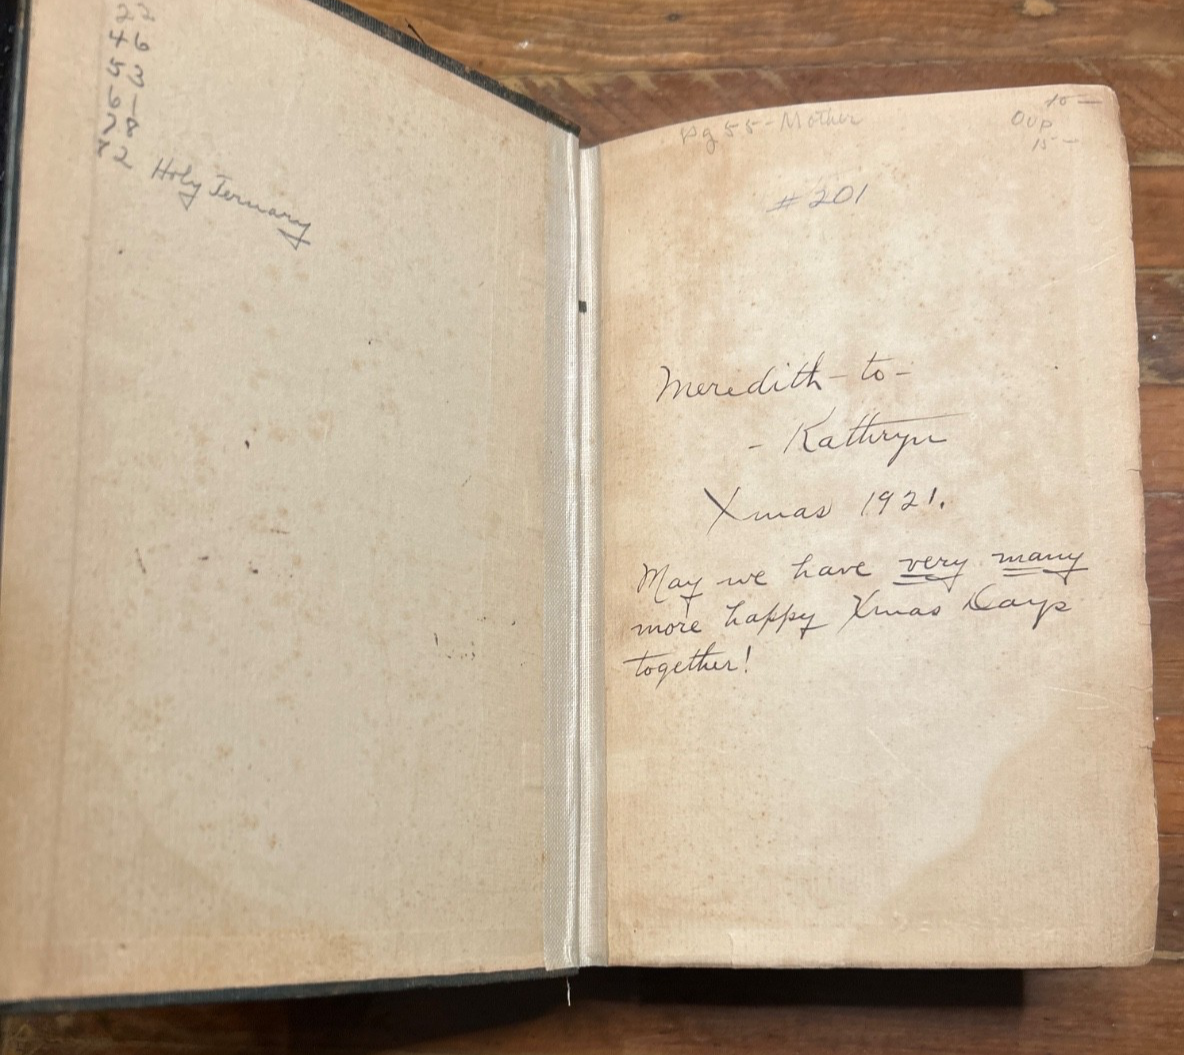 22
46
53
6-
78
72 Holy Ternary
pg 55 - Mother
10 —
OUP
15 —
#201
Meredith - to -
- Kathryn
Xmas 1921.
May we have very many
more happy Xmas Days
together!